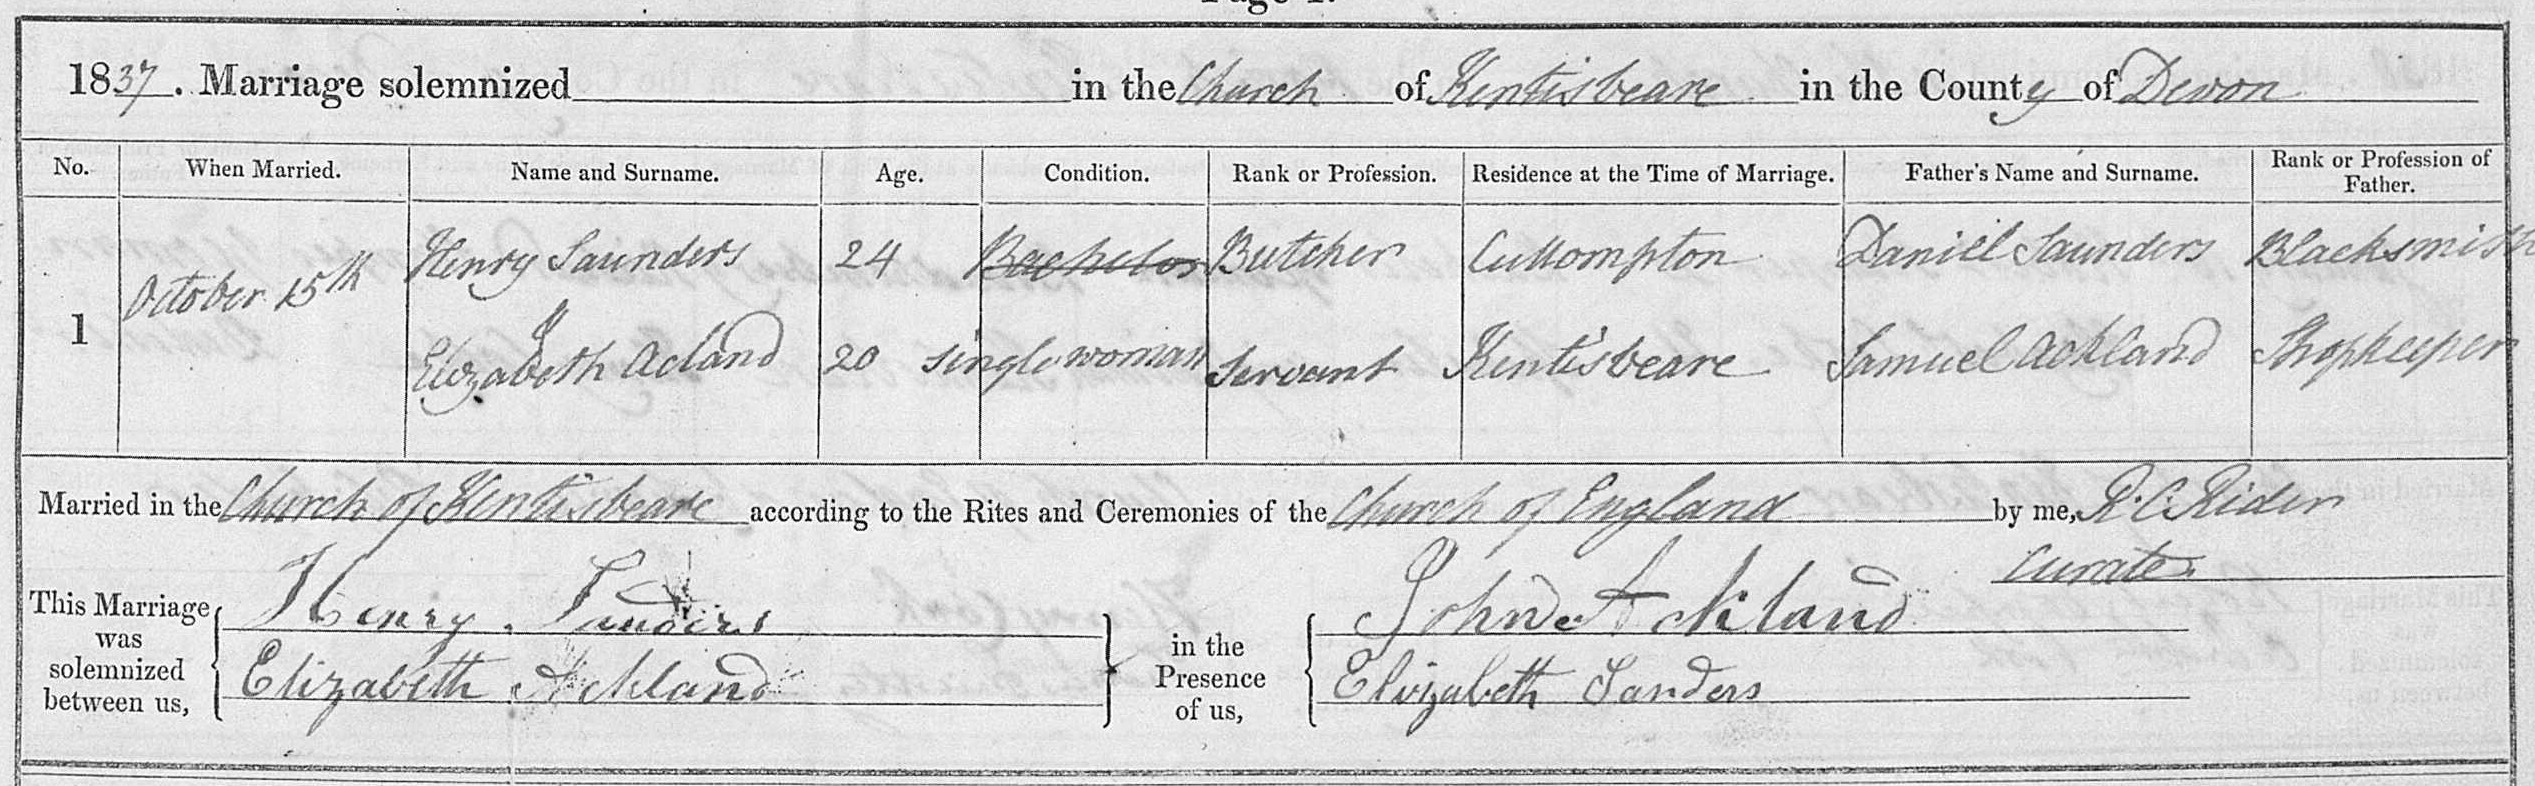 Page 1.
1837. Marriage solemnized in the Church of Kentisbeare in the County of Devon
No. When Married. Name and Surname. Age. Condition. Rank or Profession. Residence at the Time of Marriage. Father's Name and Surname. Rank or Profession of Father.
Henry Saunders 24 Bachelor Butcher Cullompton Daniel Saunders Blacksmith
1 October 15th
Elizabeth Acland 20 Single woman Servant Kentisbeare Samuel Ackland Shopkeeper
Married in the Church of Kentisbeare according to the Rites and Ceremonies of the Church of England by me, R. C. Rider
Curate
This Marriage was solemnized between us, Henry Sanders in the Presence of us, John Ackland
Elizabeth Ackland Elizabeth Sanders